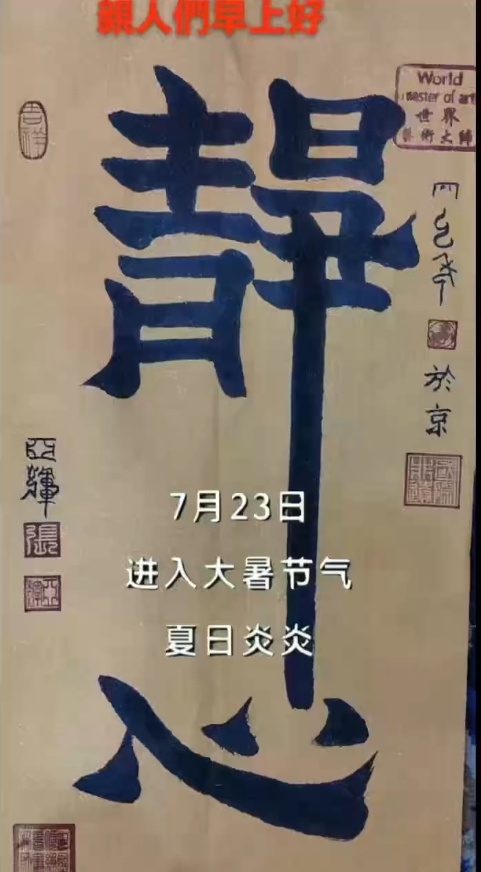 親人們早上好
靜心
World
master of art
世界
藝術大師
吉祥
於京
亞輝
張
7月23日
进入大暑节气
夏日炎炎